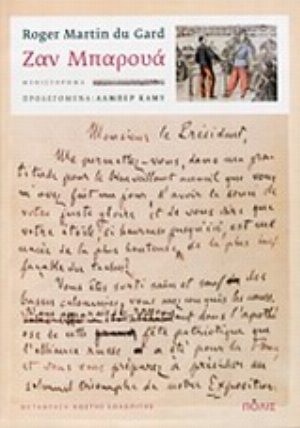 Roger Martin du Gard
Ζαν Μπαρουά
ΜΥΘΙΣΤΟΡΗΜΑ
ΠΡΟΛΕΓΟΜΕΝΑ: ΑΛΜΠΕΡ ΚΑΜΥ
Monsieur le Président,
Me permettez-vous, dans ma gra-
titude pour le bienveillant accueil que vous
m'avez fait un jour, d'avoir le souci de
votre juste gloire et de vous dire que
votre étoile, si heureuse jusqu'ici, est me-
nacée de la plus honteuse, de la plus inef-
façable des taches?
Vous êtes sorti sain et sauf des
basses calomnies, vous avez conquis les cœurs.
dans l'apothé-
ose de cette fête patriotique que
l'alliance russe a été pour la France,
et vous vous préparez à présider au
solennel triomphe de notre Exposition
ΜΕΤΑΦΡΑΣΗ ΚΩΣΤΗΣ ΣΩΧΩΡΙΤΗΣ
ΠΟΛΙΣ